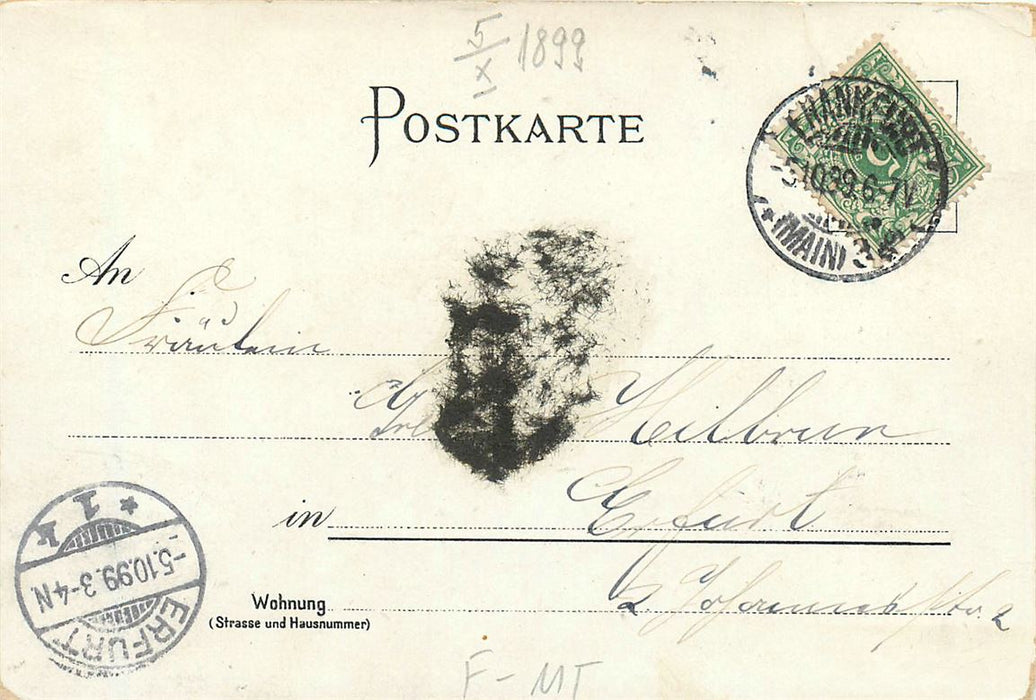 5/X 1899
POSTKARTE
FRANKFURT
5.10.99.6-7V.
(MAIN) 3
An
Fräulein
Heilbrun
in Erfurt
Wohnung
(Strasse und Hausnummer)
2
1 k
-5.10.99.3-4N
ERFURT
F-MT